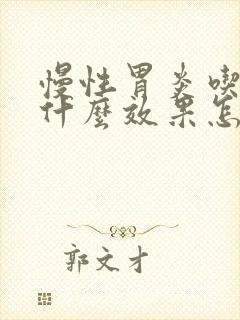 慢性胃炎喫
什麼效果怎
郭文才